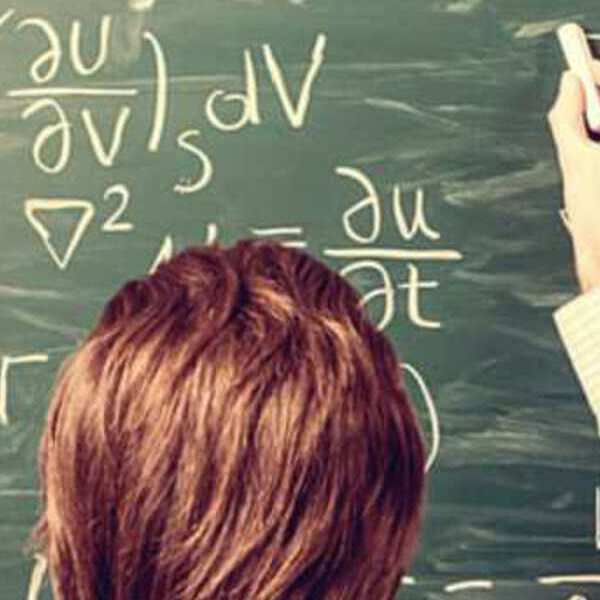 (∂U/∂V)_S dV
∇² u = ∂u/∂t
)